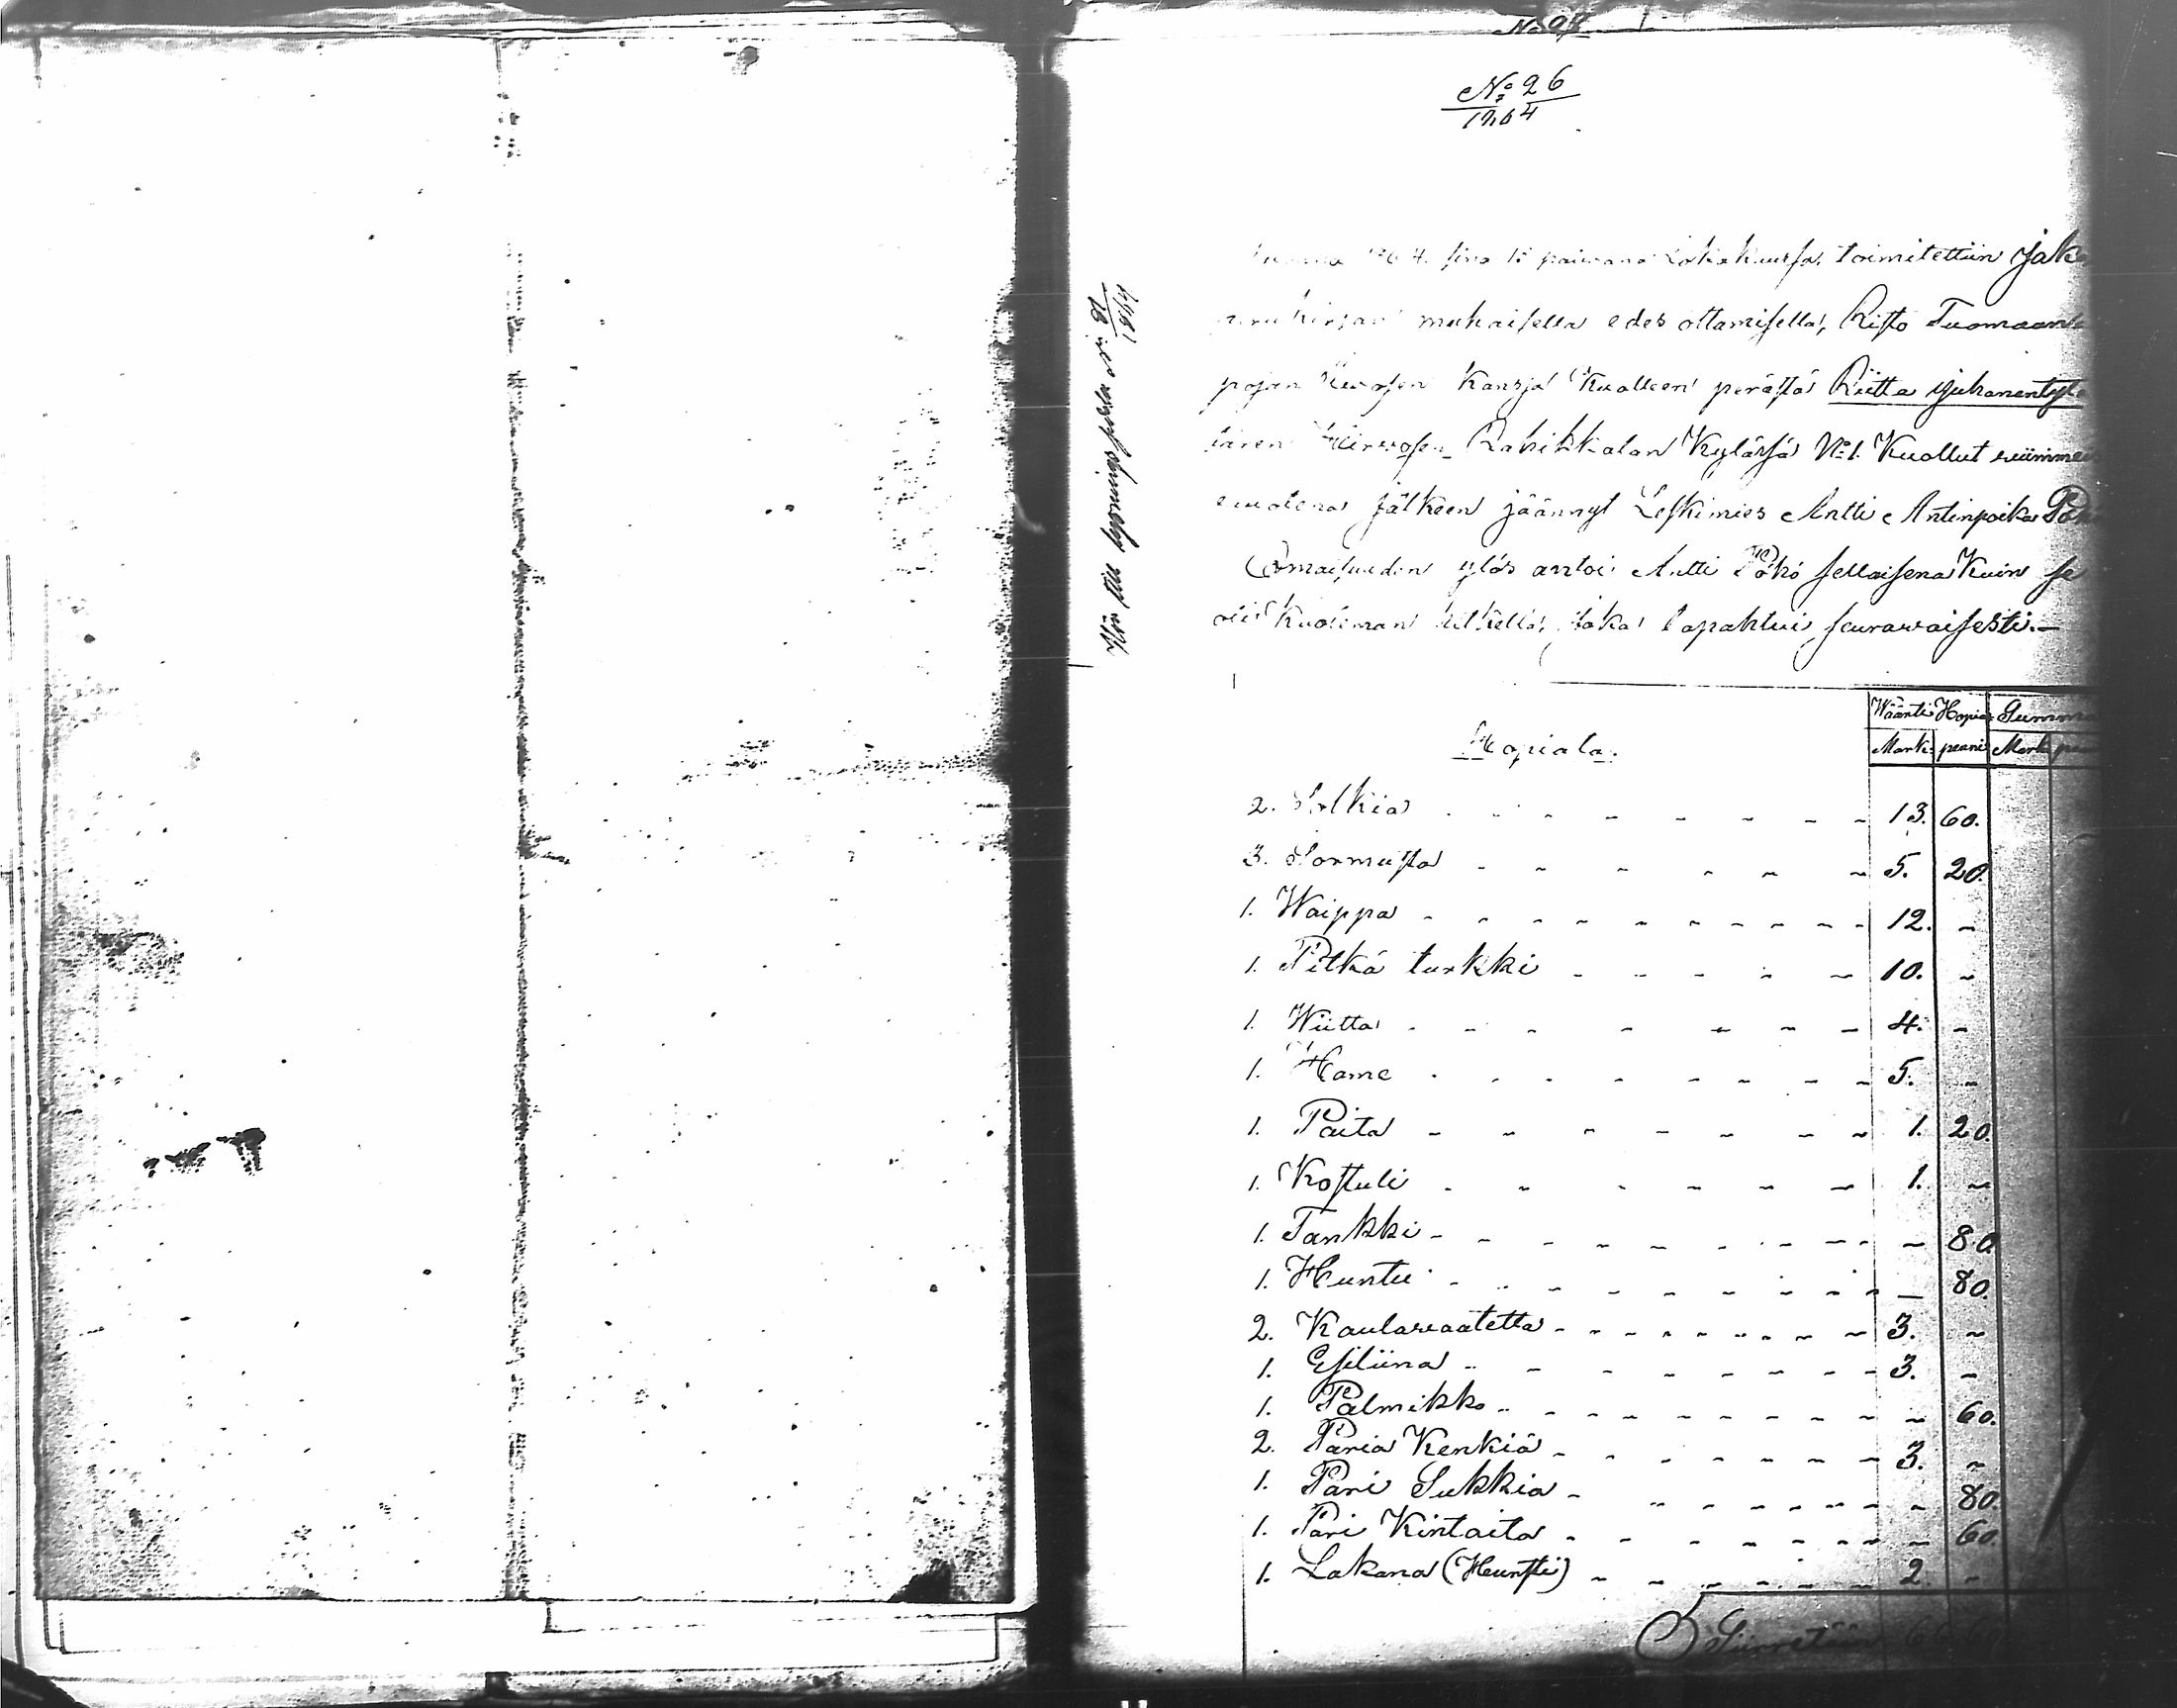 No 26
1864
Hör till bygnings syn N: 81
1864
toimitettiin Jako
mukaisella edes ottamisella, Risto Tuomaan
pojan kansa Kuolleen perästä Riitta Juhanentyt
tären Hirvosen Rahikkalan Kylässä No 1. Kuollut wiimmei
jälkeen jäännyt Leskimies Antti Antinpoika Pö
Omaisuuden ylös antoi Antti Pökö sellaisena Kuin se
oli Kuoleman hetkellä, joka tapahtui seurawaisesti.
Wäänti Hopia Summa
Hopiata. Mark. penni Mark pen
2. Solkia 13. 60.
3. Sormusta 5. 20.
1. Waippa 12. -
1. Pitkä turkki 10. -
1. Wiitta 4. -
1. Hame 5. -
1. Paita 1. 20.
1. Kostuli 1. -
1. Tankki - 80.
1. Huntu - 80.
2. Kaulawaatetta 3. -
1. Esiliina 3. -
1. Palmikko - 60.
2. Paria Kenkiä 3. -
1. Pari Sukkia - 80.
1. Pari Kintaita - 60.
1. Lakana (Hursti) 2. -
Siirretään